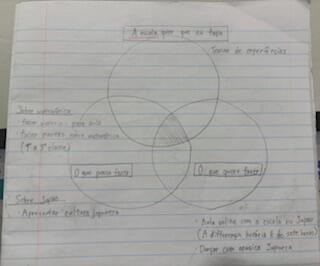 A escola quer que eu faça
Troca de experiências
Sobre matemática
· fazer
· fazer sobre matemática
(1ª a 3ª classe)
O que posso fazer
O que quero fazer
Sobre Japão
· Apresentar cultura japonesa
· Aula online com a escola no Japão
(A differença horária é de sete horas)
· Dançar com música Japonesa